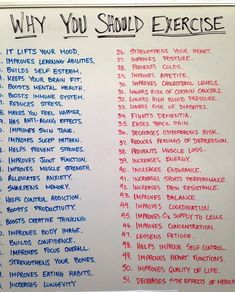 WHY YOU SHOULD EXERCISE
. IT LIFTS YOUR MOOD.
. IMPROVES LEARNING ABILITIES.
. BUILDS SELF ESTEEM.
. KEEPS YOUR BRAIN FIT.
. BOOSTS MENTAL HEALTH.
. BOOSTS IMMUNE SYSTEM.
. REDUCES STRESS.
. MAKES YOU FEEL HAPPIER.
. HAS ANTI-AGING EFFECTS.
. IMPROVES SKIN TONE.
. IMPROVES SLEEP PATTERN.
. HELPS PREVENT STROKES.
. IMPROVES JOINT FUNCTION.
. IMPROVES MUSCLE STRENGTH.
. ALLEVIATES ANXIETY.
. SHARPENS MEMORY.
. HELPS CONTROL ADDICTION.
. BOOSTS PRODUCTIVITY.
. BOOSTS CREATIVE THINKING.
. IMPROVES BODY IMAGE.
. BUILDS CONFIDENCE.
. IMPROVES FOCUS OVERALL.
. STRENGTHENS YOUR BONES.
. IMPROVES EATING HABITS.
. INCREASES LONGEVITY.
26. STRENGTHENS YOUR HEART.
27. IMPROVES POSTURE.
28. PREVENTS COLDS.
29. IMPROVES APPETITE.
30. IMPROVES CHOLESTEROL LEVELS.
31. LOWERS RISK OF CERTAIN CANCERS.
32. LOWERS HIGH BLOOD PRESSURE.
33. LOWERS RISK OF DIABETES.
34. FIGHTS DEMENTIA.
35. EASES BACK PAIN.
36. DECREASES OSTEOPOROSIS RISK.
37. REDUCES FEELINGS OF DEPRESSION.
38. PREVENTS MUSCLE LOSS.
39. INCREASES ENERGY.
40. INCREASES ENDURANCE.
41. INCREASES SPORTS PERFORMANCE.
42. INCREASES PAIN RESISTANCE.
43. IMPROVES BALANCE.
44. IMPROVES COORDINATION.
45. IMPROVES O2 SUPPLY TO CELLS.
46. IMPROVES CONCENTRATION.
47. LESSENS FATIGUE.
48. HELPS IMPROVE SELF CONTROL.
49. IMPROVES HEART FUNCTIONS.
50. IMPROVES QUALITY OF LIFE.
51. DECREASES THE EFFECTS OF